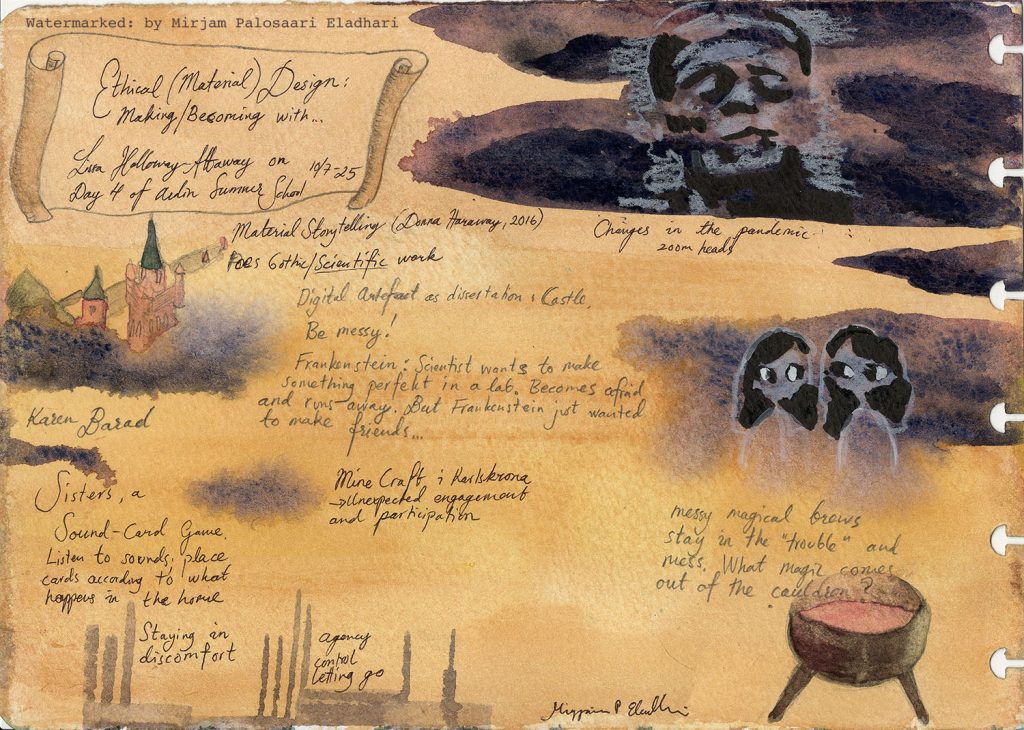 Watermarked: by Mirjam Palosaari Eladhari
Ethical (Material) Design:
Making/Becoming with...
Lissa Holloway-Attaway on
Day 4 of Ardin Summer School 10/7-25
Material Storytelling (Donna Haraway, 2016)
Gothic/Scientific work
Changes in the pandemic
zoom heads
Digital Artefact as dissertation: Castle.
Be messy!
Frankenstein: Scientist wants to make
something perfekt in a lab. Becomes afrid
and runs away. But Frankenstein just wanted
to make friends...
Karen Barad
Mine Craft i Karlskrona
→Unexpected engagement
and participation
Sisters, a
Sound-Card Game.
Listen to sounds, place
cards according to what
happens in the home
messy magical brews
stay in the "trouble" and
mess. What magic comes
out of the cauldron?
Staying in
discomfort
agency
control
letting go
Mirjam P Eladhari